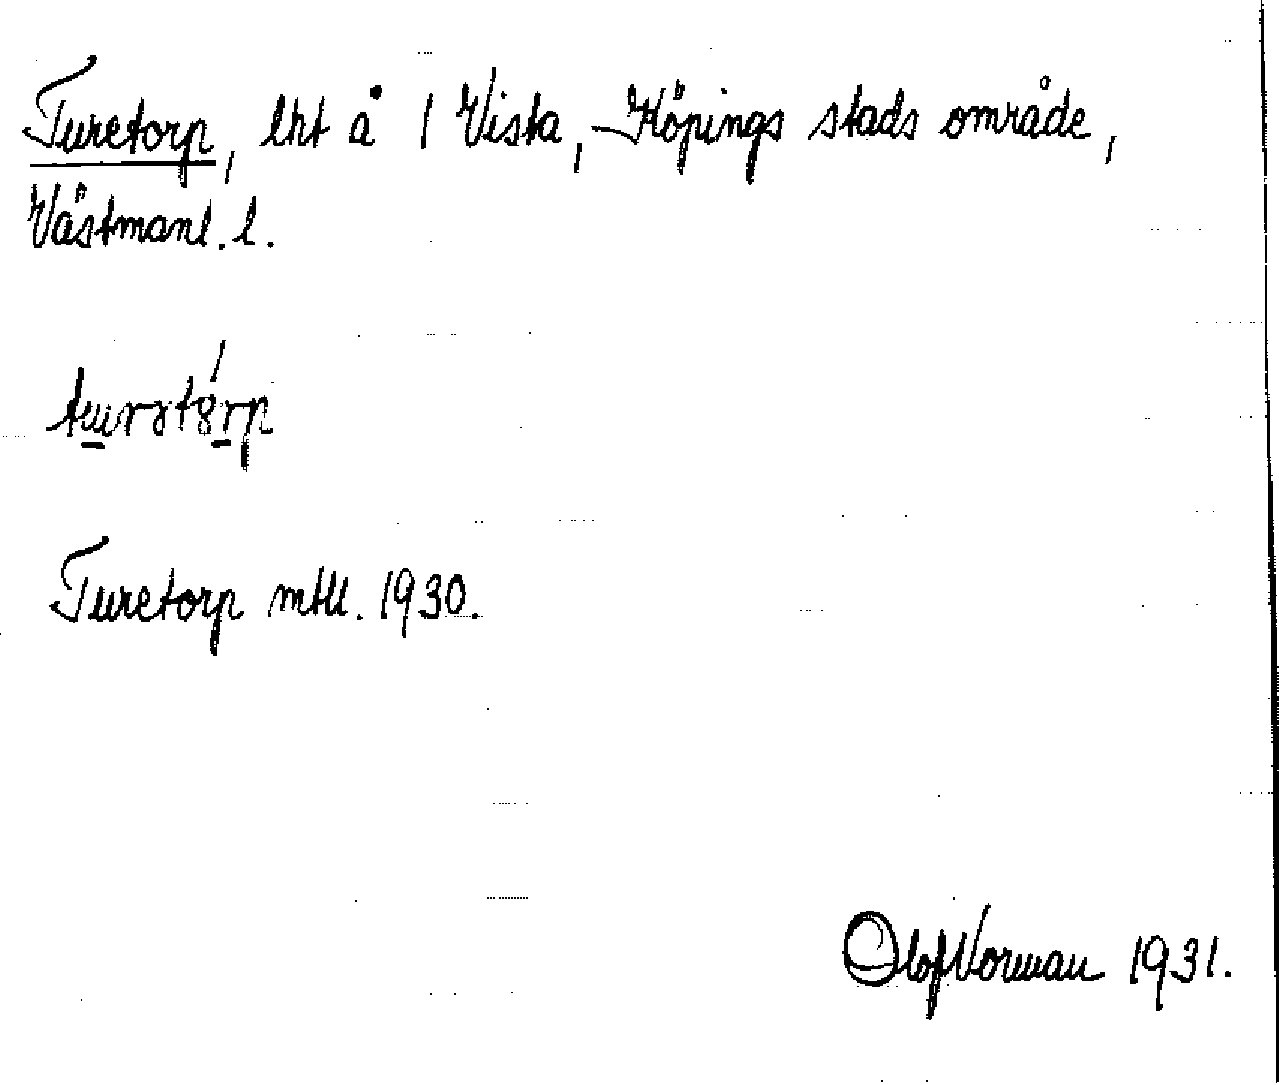 Turetorp, lht å 1 Vista, Köpings stads område,
Västmanl. l.
Turetorp mtll. 1930.
Olof Norman 1931.